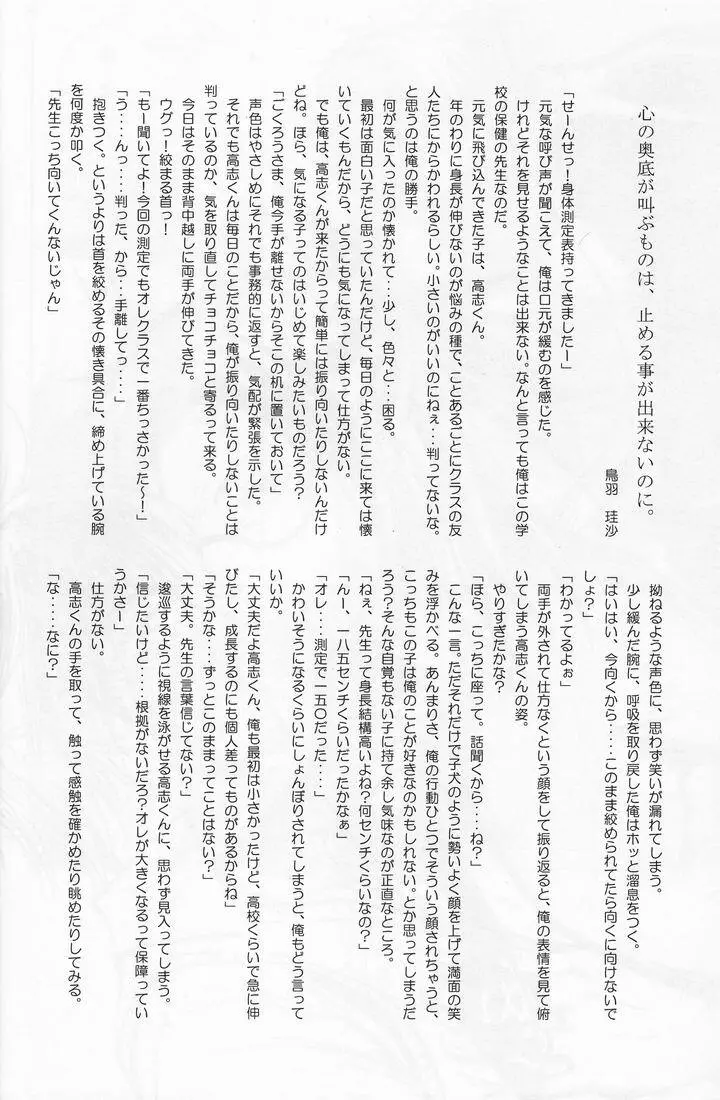 心の奥底が叫ぶものは、止める事が出来ないのに。
鳥羽　珪沙
「せーんせっ！身体測定表持ってきましたー」
元気な呼び声が聞こえて、俺は口元が緩むのを感じた。
けれどそれを見せるようなことは出来ない。なんと言っても俺はこの学
校の保健の先生なのだ。
元気に飛び込んできた子は、高志くん。
年のわりに身長が伸びないのが悩みの種で、ことあるごとにクラスの友
人たちにからかわれるらしい。小さいのがいいのにねぇ・・・判ってないな。
と思うのは俺の勝手。
何が気に入ったのか懐かれて・・少し、色々と・・・困る。
最初は面白い子だと思っていたんだけど、毎日のようにここに来ては懐
いていくもんだから、どうにも気になってしまって仕方がない。
でも俺は、高志くんが来たからって簡単には振り向いたりしないんだけ
どね。ほら、気になる子ってのはいじめて楽しみたいものだろう？
「ごくろうさま、俺今手が離せないからそこの机に置いておいて」
声色はやさしめにそれでも事務的に返すと、気配が緊張を示した。
それでも高志くんは毎日のことだから、俺が振り向いたりしないことは
判っているのか、気を取り直してチョコチョコと寄るって来る。
今日はそのまま背中越しに両手が伸びてきた。
ウグっ！絞まる首っ！
「もー聞いてよ！今回の測定でもオレクラスで一番ちっさかった〜！」
「う・・・んっ・・・判った、から・・手離してっ・・・」
抱きつく。というよりは首を絞めるその懐き具合に、締め上げている腕
を何度か叩く。
「先生こっち向いてくんないじゃん」
拗ねるような声色に、思わず笑いが漏れてしまう。
少し緩んだ腕に、呼吸を取り戻した俺はホッと溜息をつく。
「はいはい、今向くから・・・・このまま絞められてたら向くに向けないで
しょ？」
「わかってるよぉ」
両手が外されて仕方なくという顔をして振り返ると、俺の表情を見て俯
いてしまう高志くんの姿。
やりすぎたかな？
「ほら、こっちに座って。話聞くから・・・ね？」
こんな一言。ただそれだけで子犬のように勢いよく顔を上げて満面の笑
みを浮かべる。あんまりさ、俺の行動ひとつでそういう顔されちゃうと、
こっちもこの子は俺のことが好きなのかもしれない。とか思ってしまうだ
ろう？そんな自覚もない子に持て余し気味なのが正直なところ。
「ねぇ、先生って身長結構高いよね？何センチくらいなの？」
「んー、一八五センチくらいだったかなぁ」
「オレ・・・測定で一五〇だった・・・」
かわいそうになるくらいにしょんぼりされてしまうと、俺もどう言って
いいか。
「大丈夫だよ高志くん、俺も最初は小さかったけど、高校くらいで急に伸
びたし、成長するのにも個人差ってものがあるからね」
「そうかな・・・ずっとこのままってことはない？」
「大丈夫。先生の言葉信じてない？」
逡巡するように視線を泳がせる高志くんに、思わず見入ってしまう。
「信じたいけど・・・・根拠がないだろ？オレが大きくなるって保障ってい
うかさー」
仕方がない。
高志くんの手を取って、触って感触を確かめたり眺めたりしてみる。
「な・・・なに？」